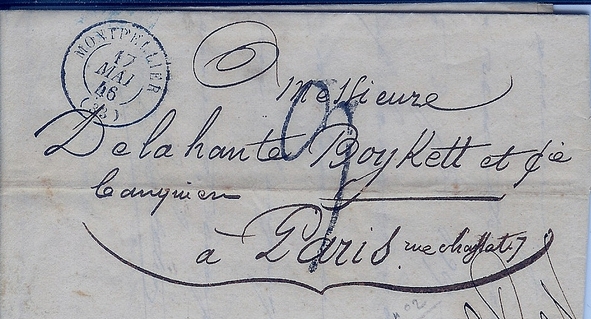 MONTPELLIER
17
MAI
46
(33)
Messieurs
Delahante Boykett et Cie
banquiers
à Paris. rue